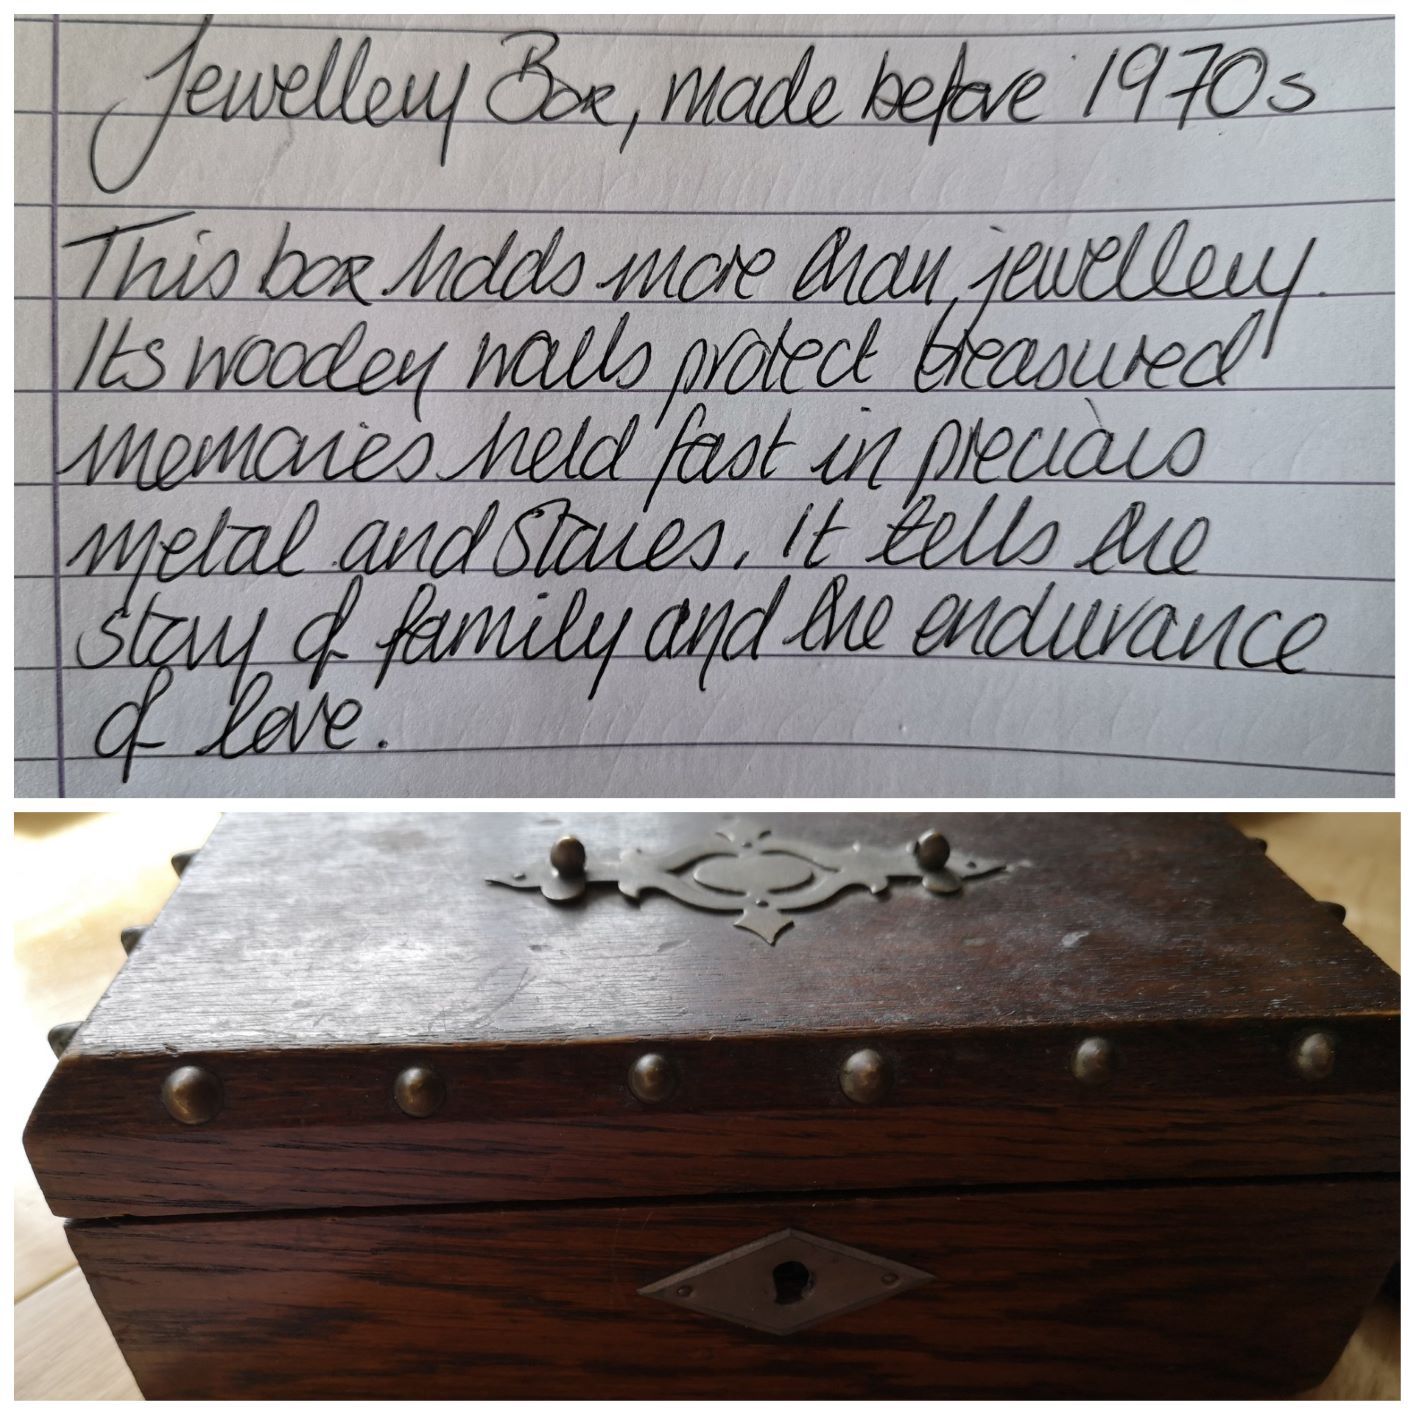 Jewellery Box, made before 1970s
This box holds more than jewellery.
Its wooden walls protect treasured
memories held fast in precious
metal and stories. It tells the
story of family and the endurance
of love.